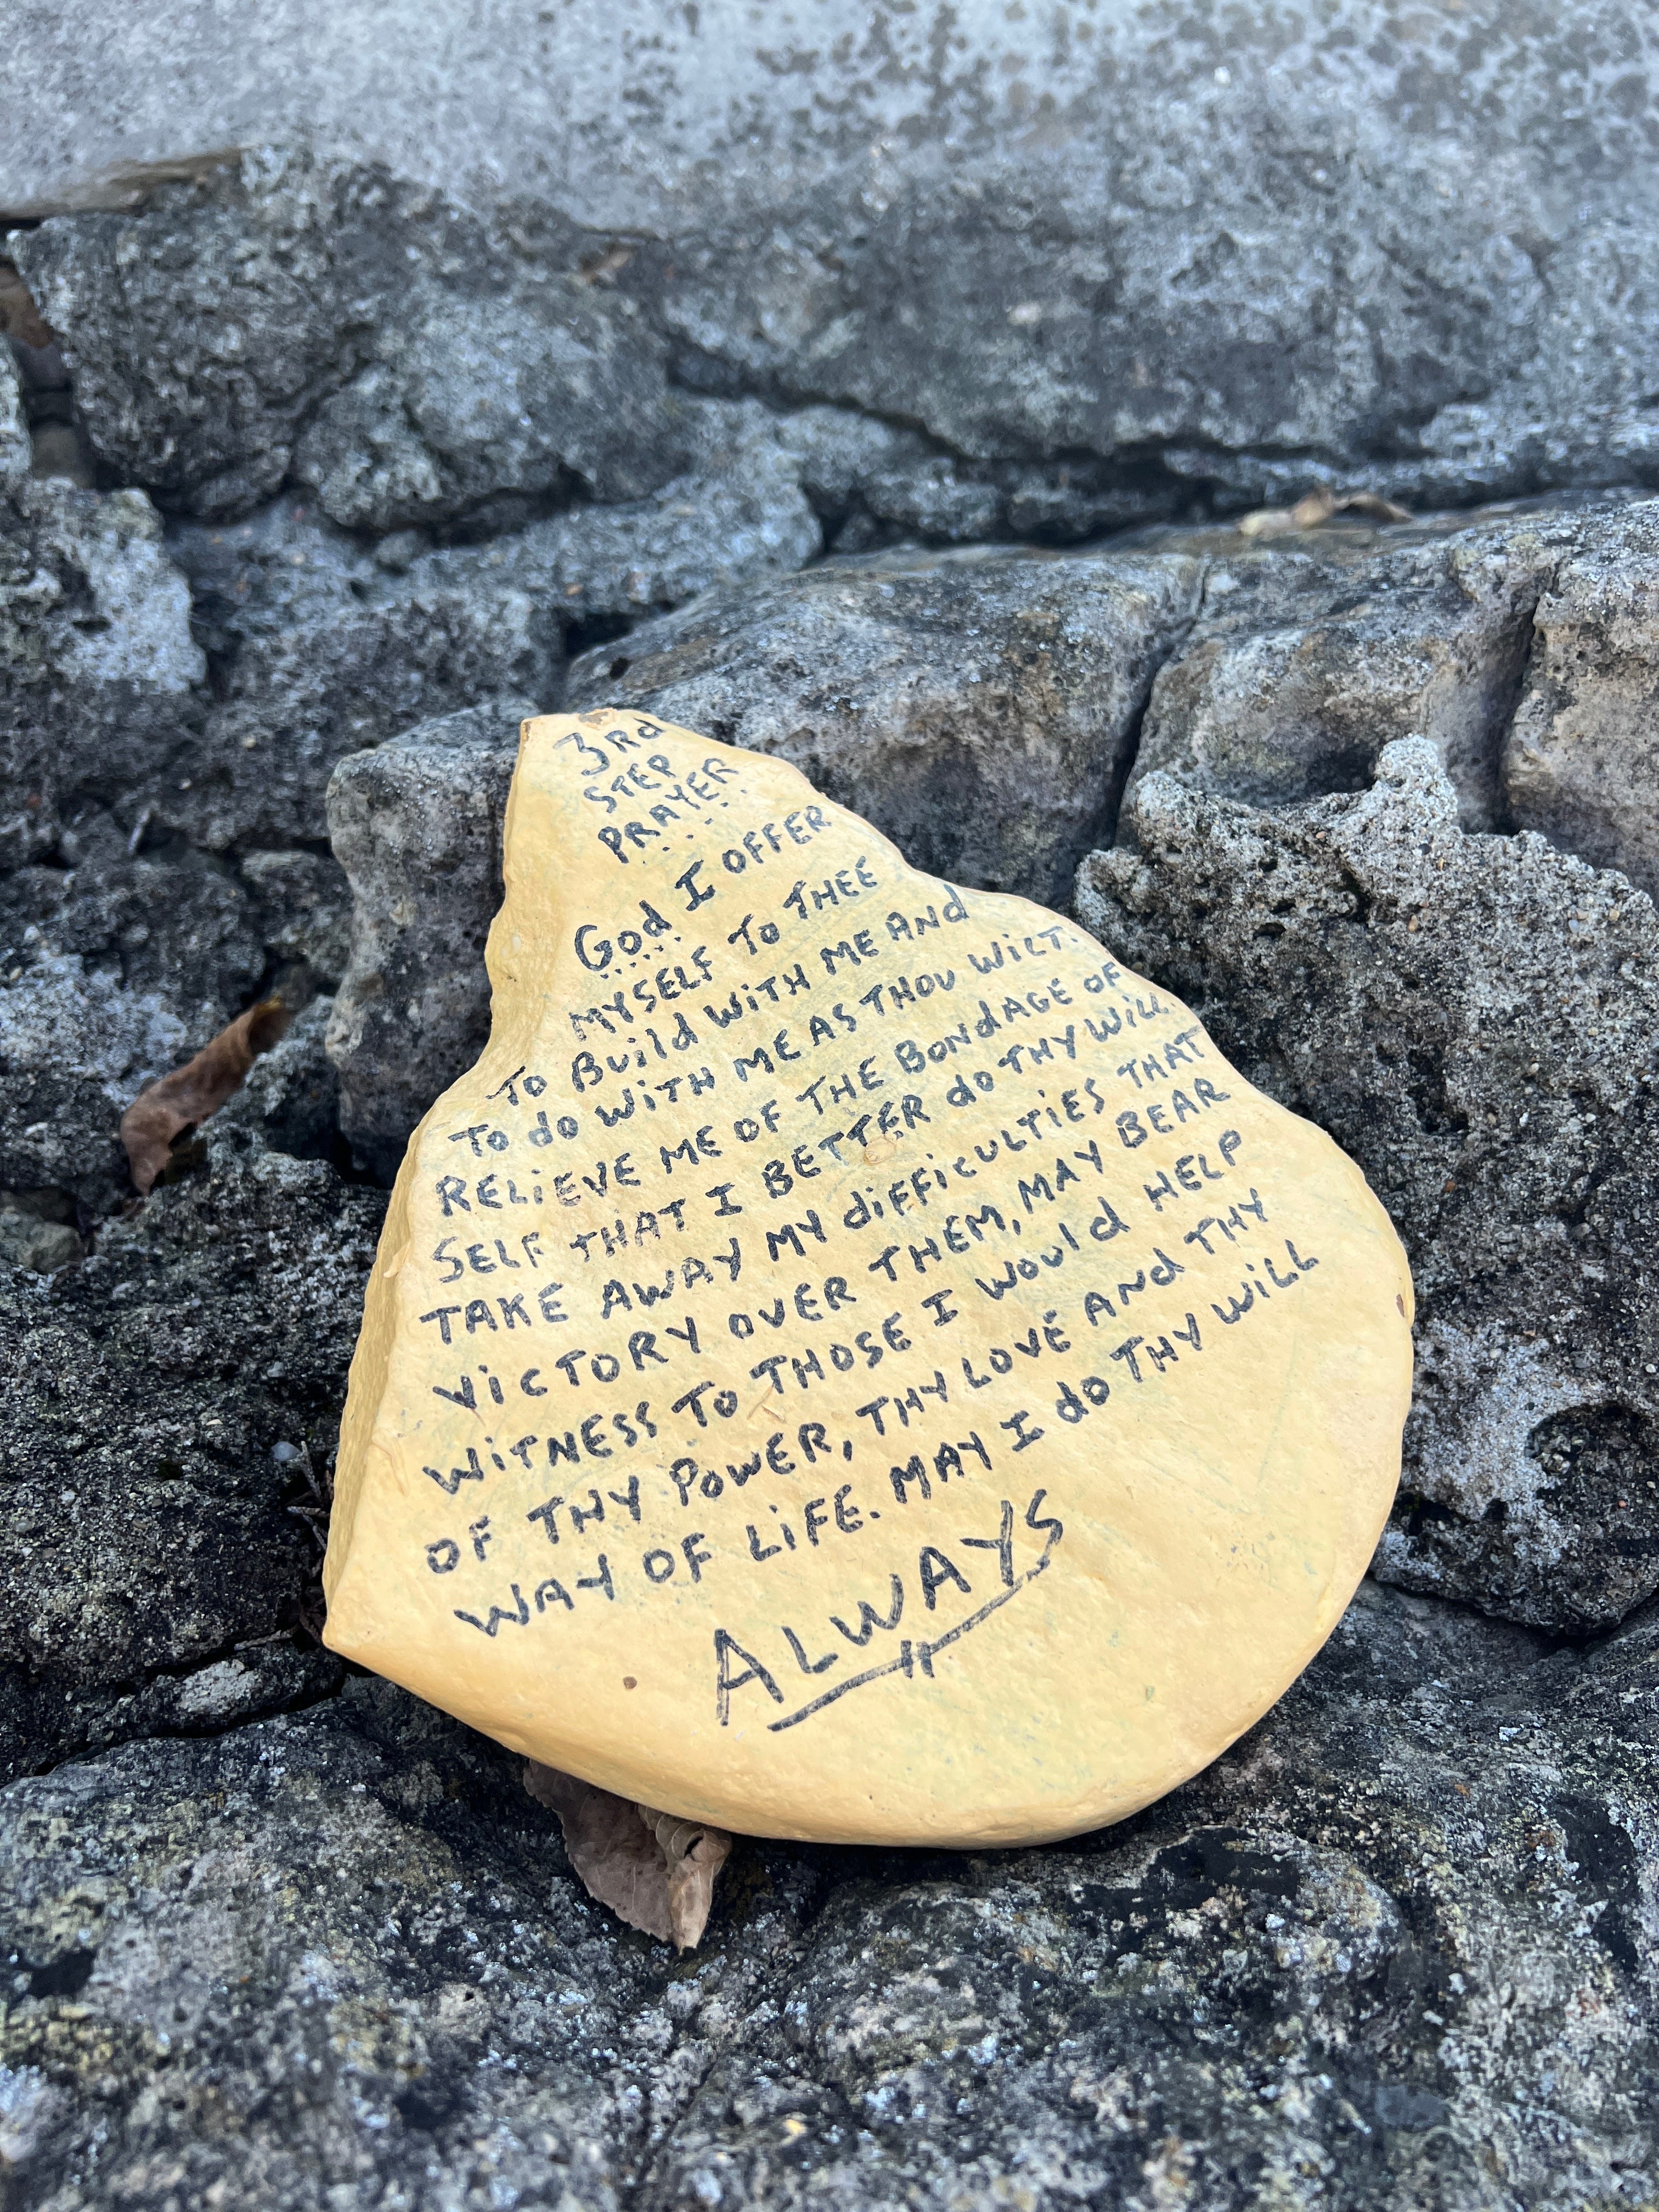 3Rd
STEP
PRAYER
God I OFFER
MYSELF To THEE
To Build WiTH ME ANd
To do WiTH ME AS THOU WiLT.
RELiEVE ME OF THE BONdAGE OF
SELF THAT I BETTER do THY WiLL.
TAKE AWAY MY diFFiCULTiES THAT
ViCTORY OVER THEM, MAY BEAR
WiTNESS To THOSE I WOULd HELP
OF THY POWER, THY LOVE ANd THY
WAY OF LiFE. MAY I do THY WiLL
ALWAYS